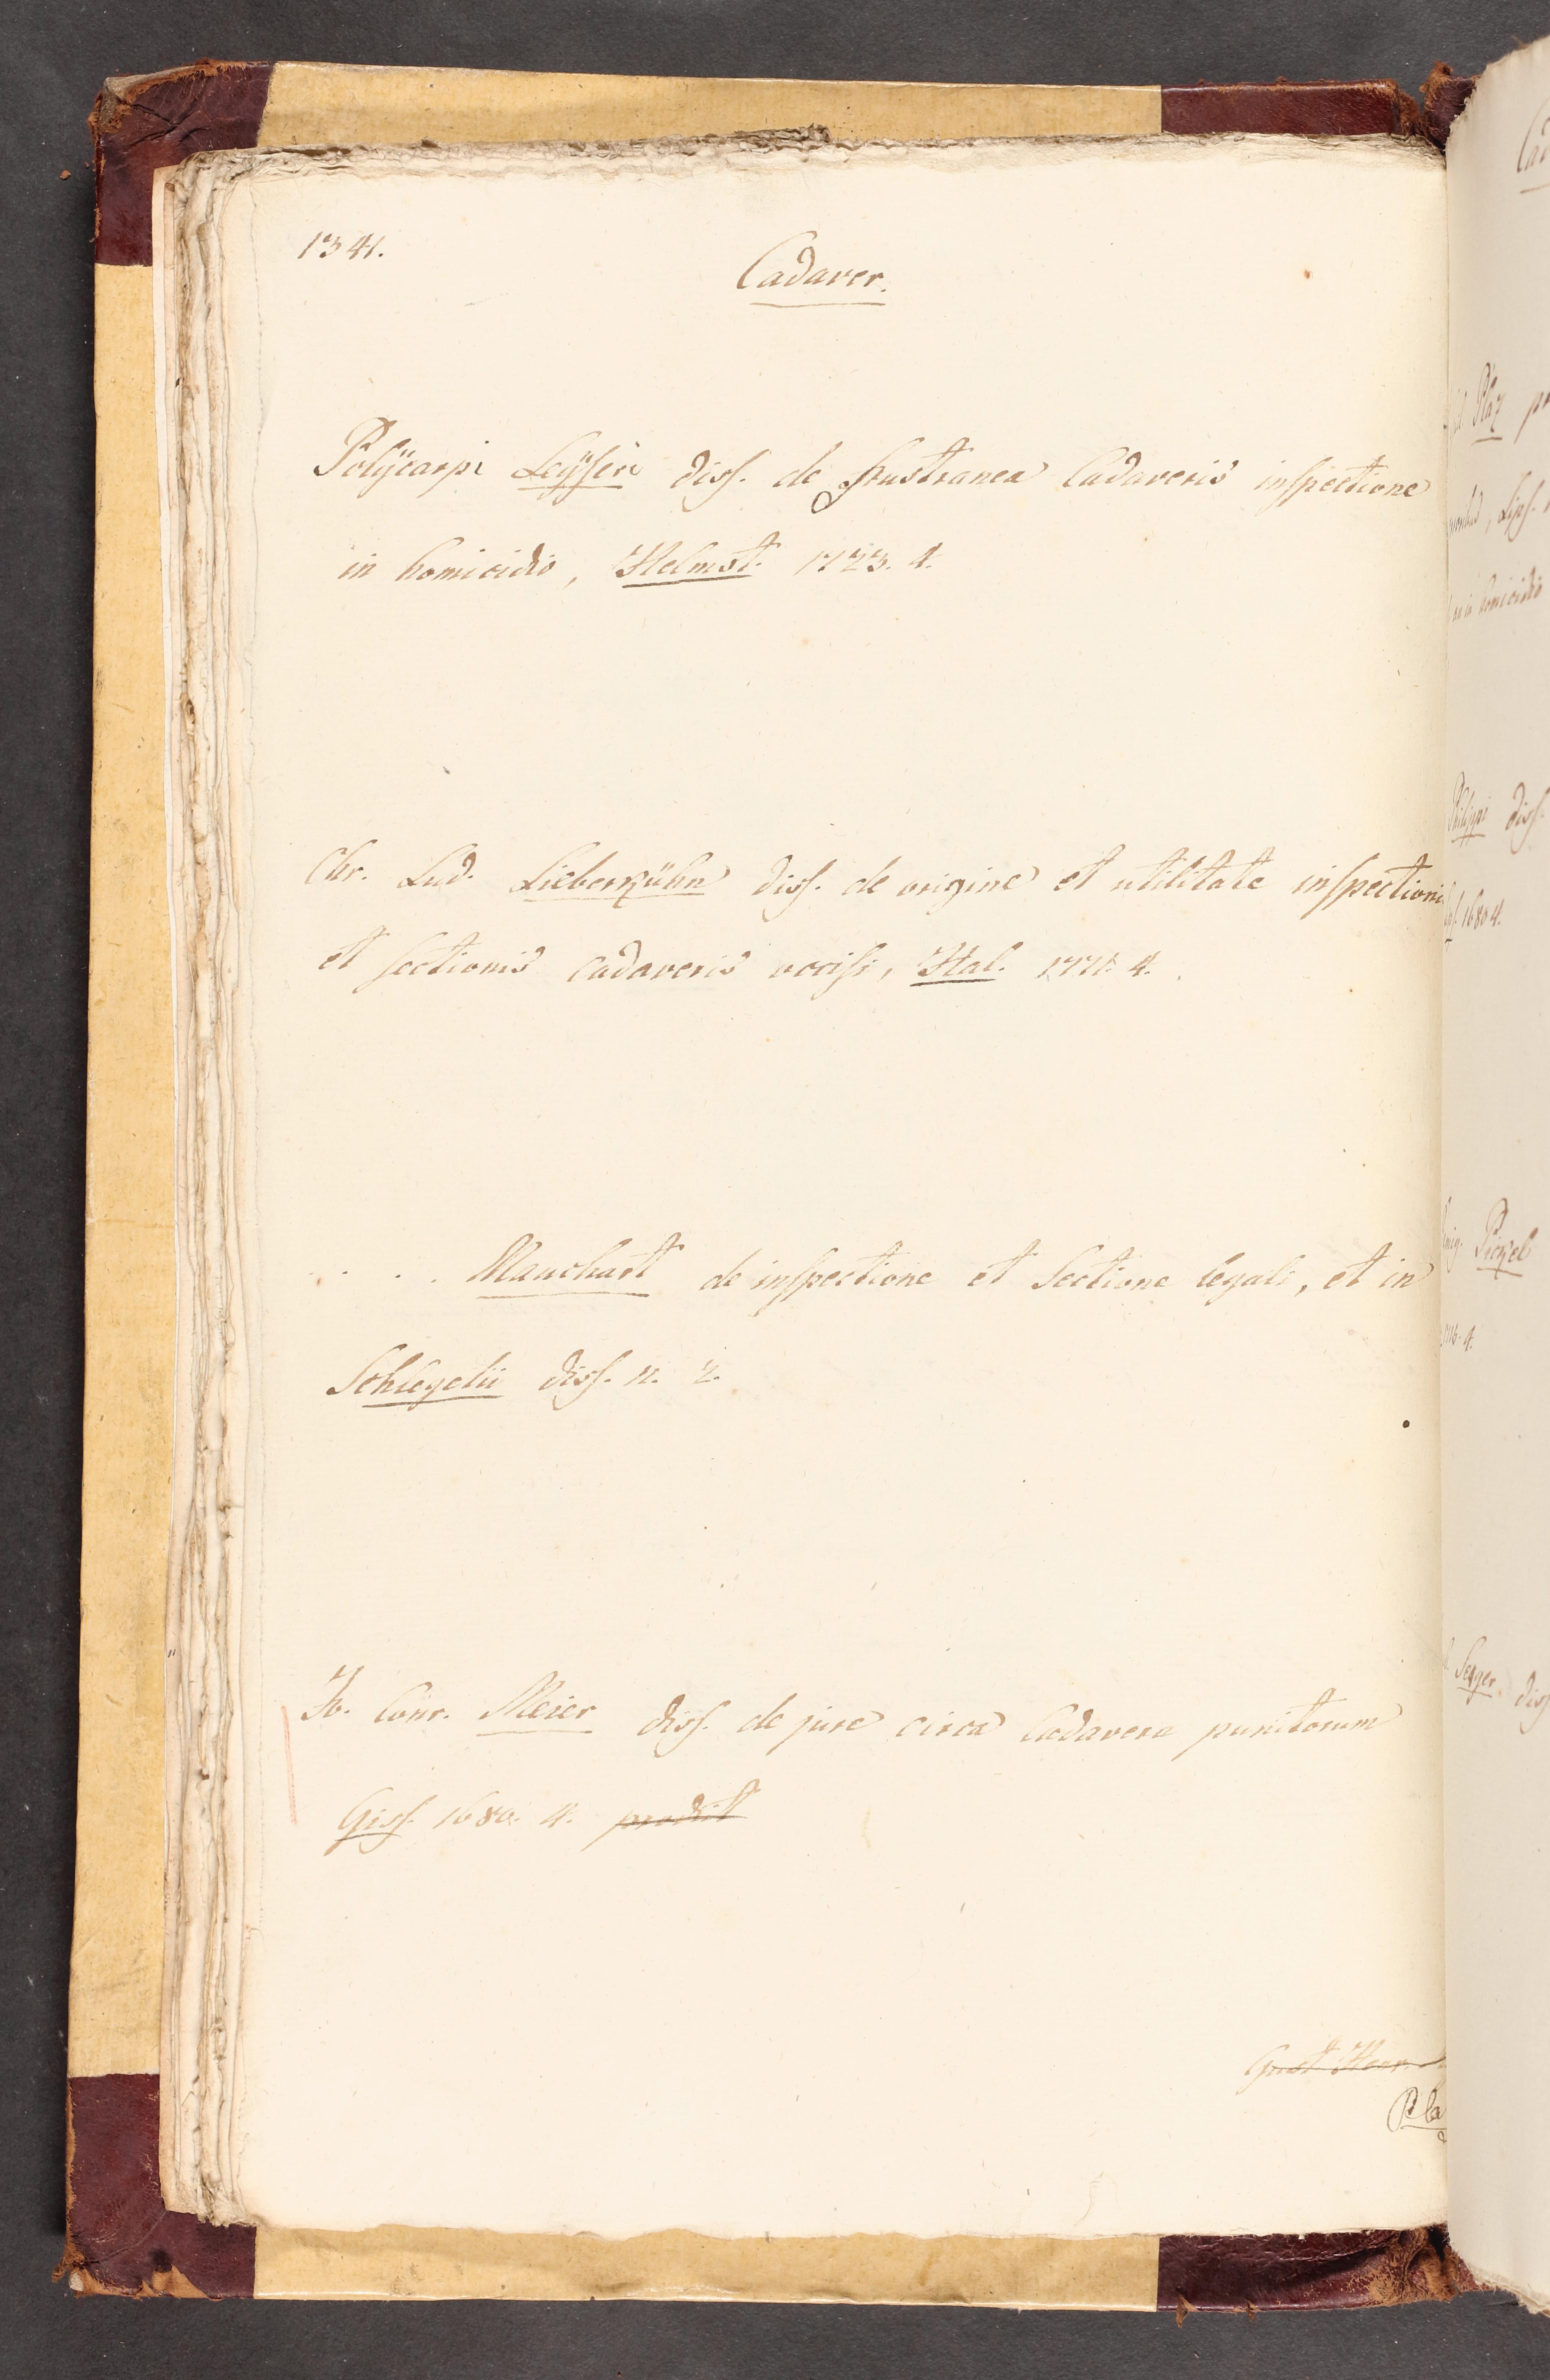 1341.
Cadaver.
Polÿcarpi Leÿseri diss. de frustranea Cadaveris inspectione
in homicidio, Helmst. 1723. 4.
Chr. Lud. Lieberkühn diss. de origine et utilitate inspectionis
et sectionis cadaveris occisi, Hal. 1771. 4.
. . . Mauchart de inspectione et Sectione legali, et in
Schlegelii diss. n. 2.
Jo. Conr. Meier diss. de jure circa Cadavera punitorum
Giss. 1680. 4. prodiit
Pla
Plaz
Lips.
homicidio
Philippi diss.
1680 4.
Pickel
4.
diss